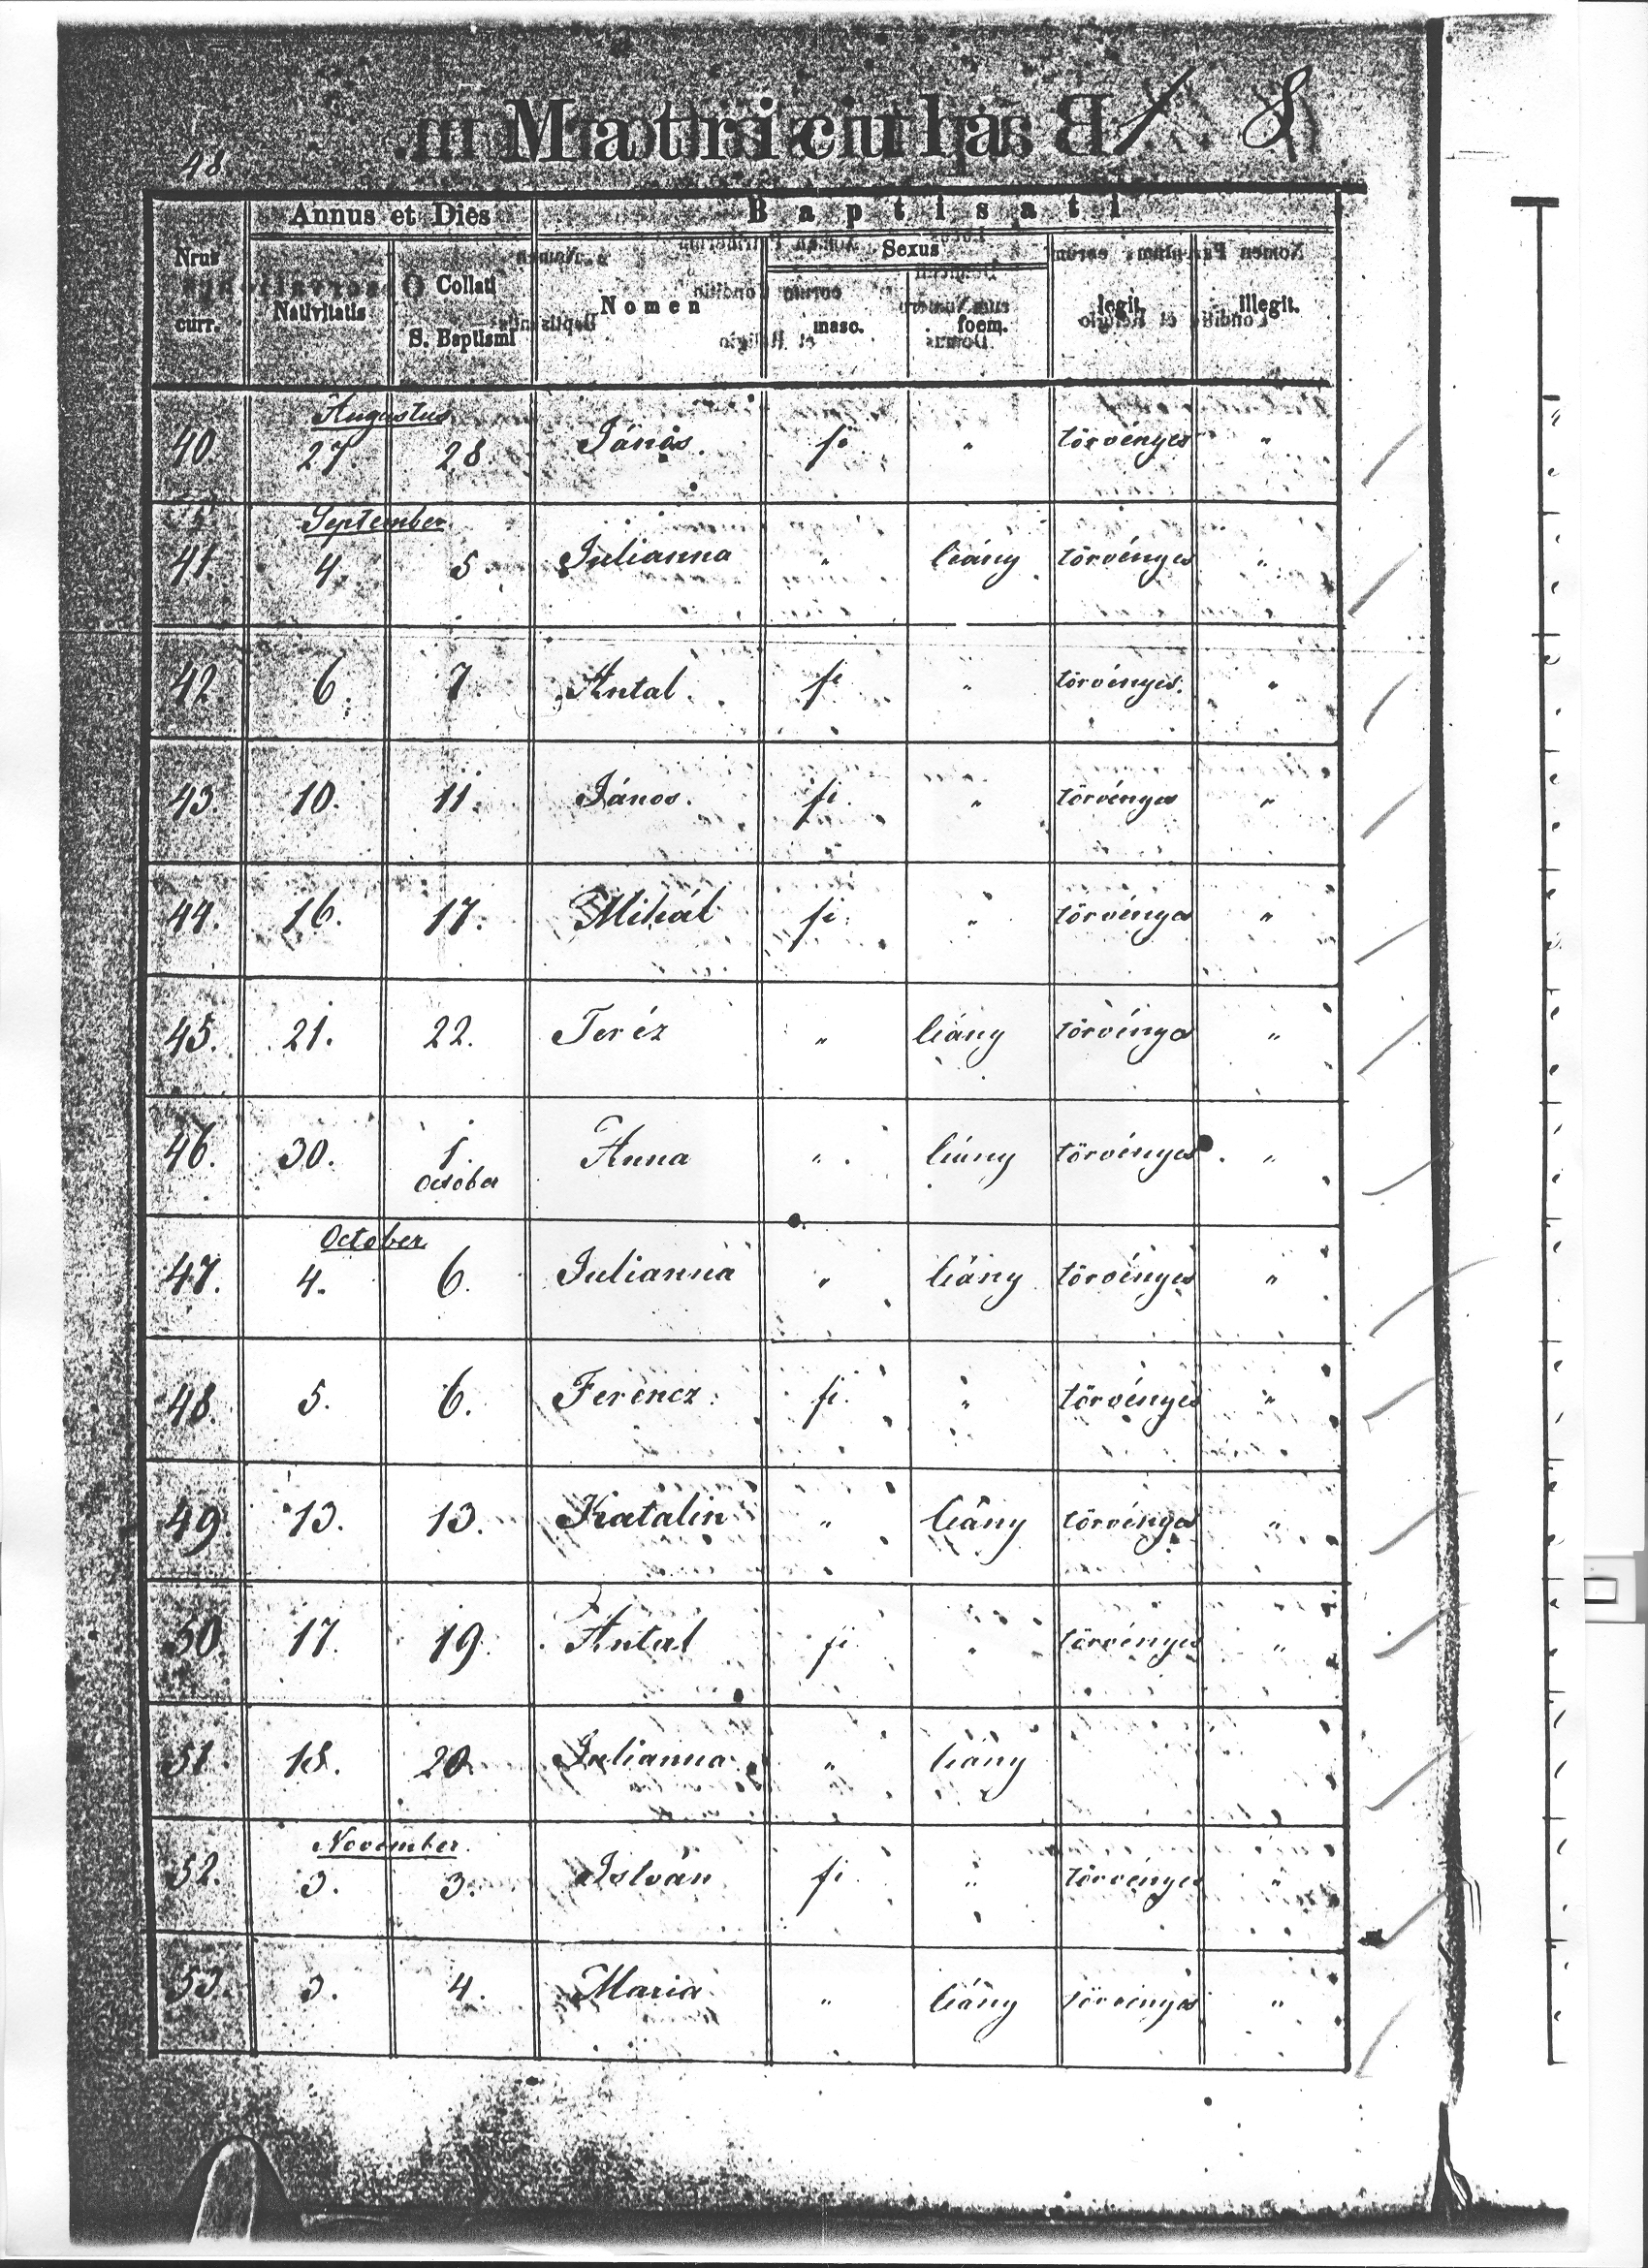 48.
Matricula B
Annus et Dies Baptisati
Nrus curr. Nativitatis Collati S. Baptismi Nomen Sexus masc. foem. legit. illegit.
Augustus
40. 27. 28 János. fi " törvényes "
September
41. 4. 5. Julianna " leány törvényes "
42. 6. 7. Antal. fi " törvényes. "
43. 10. 11. János. fi. " törvényes "
44. 16. 17. Mihál fi. " törvényes "
45. 21. 22. Teréz " leány törvényes "
46. 30. 1. October Anna " leány törvényes "
October
47. 4. 6. Julianna " leány törvényes "
48. 5. 6. Ferencz. fi. " törvényes "
49. 13. 13. Katalin " leány törvényes "
50. 17. 19. Antal fi " törvényes "
51. 18. 20. Julianna. " leány
November
52. 3. 3. István fi. " törvényes "
53. 3. 4. Maria " leány törvényes "